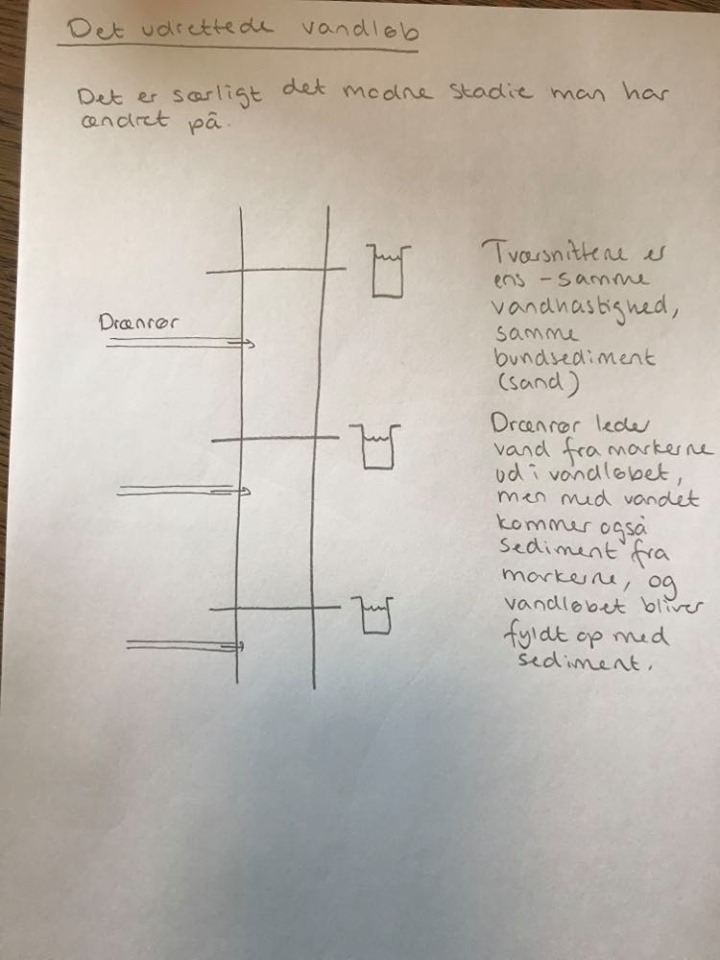 Det udrettede vandløb
Det er særligt det modne stadie man har
ændret på.
Drænrør
Tværsnittene er
ens - samme
vandhastighed,
samme
bundsediment
(sand)
Drænrør leder
vand fra markerne
ud i vandløbet,
men med vandet
kommer også
sediment fra
markerne, og
vandløbet bliver
fyldt op med
sediment.